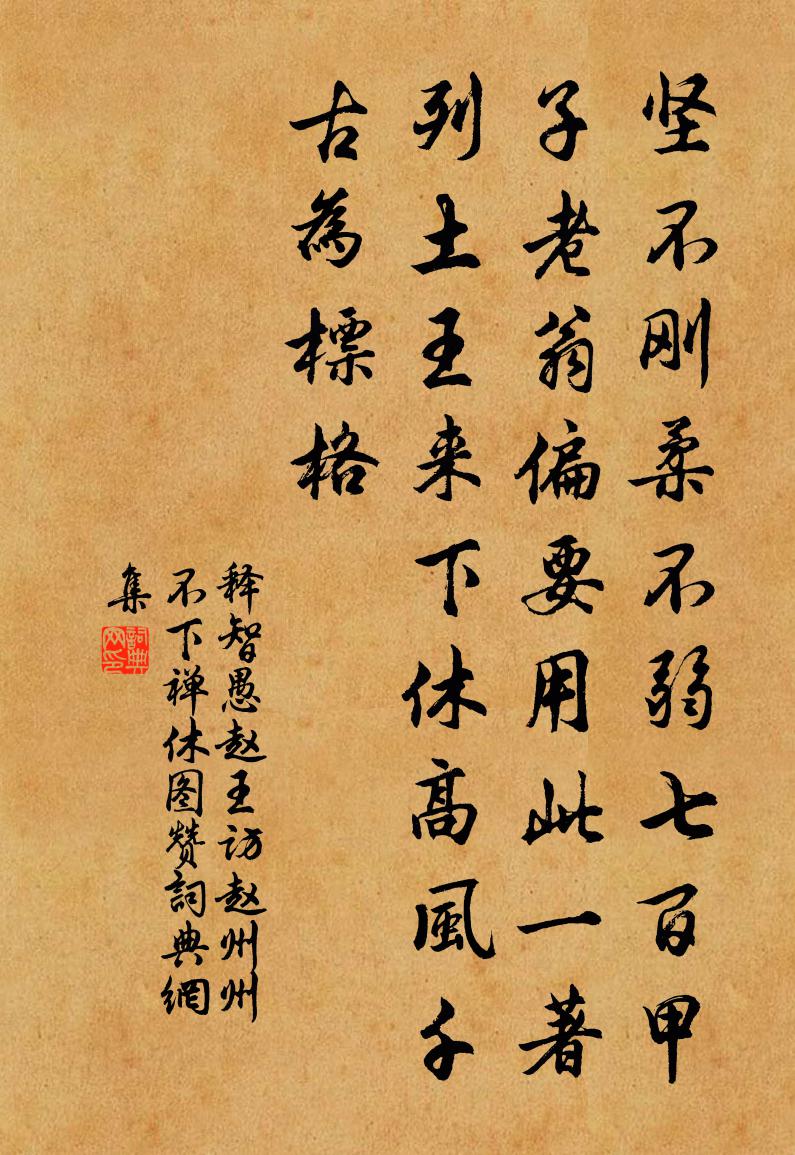 坚不刚柔不弱七百甲
子老翁偏要用此一著
列土王来下休高風千
古為標格
释智愚赵王访赵州州
不下禅休图赞詞典網
集
詞典網印